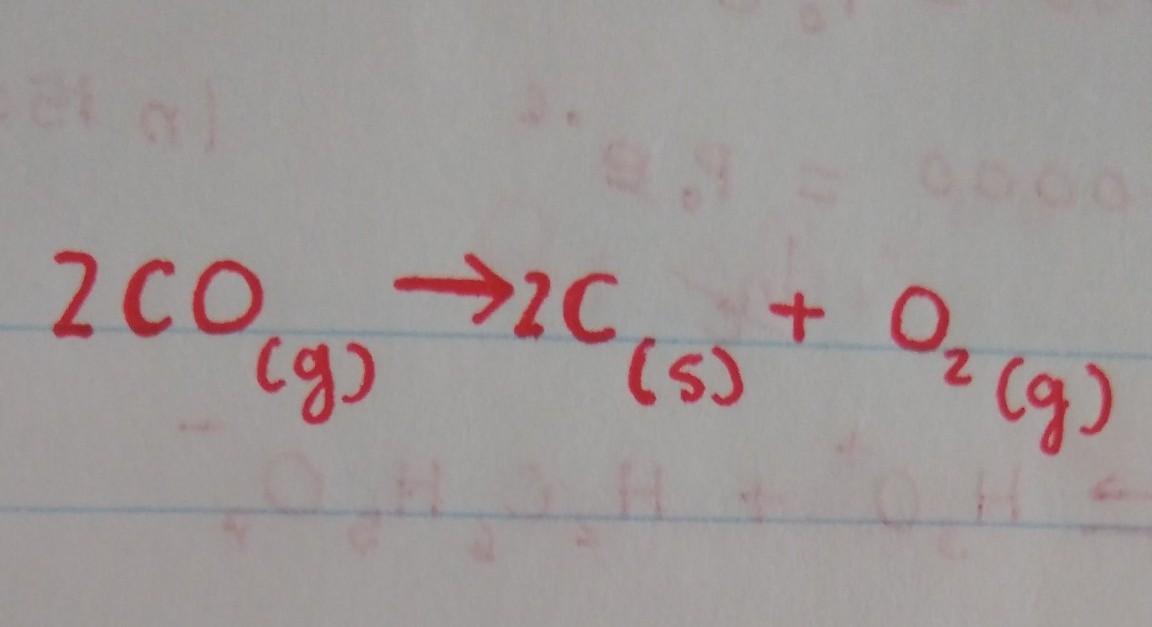 2CO(g) → 2C(s) + O₂(g)